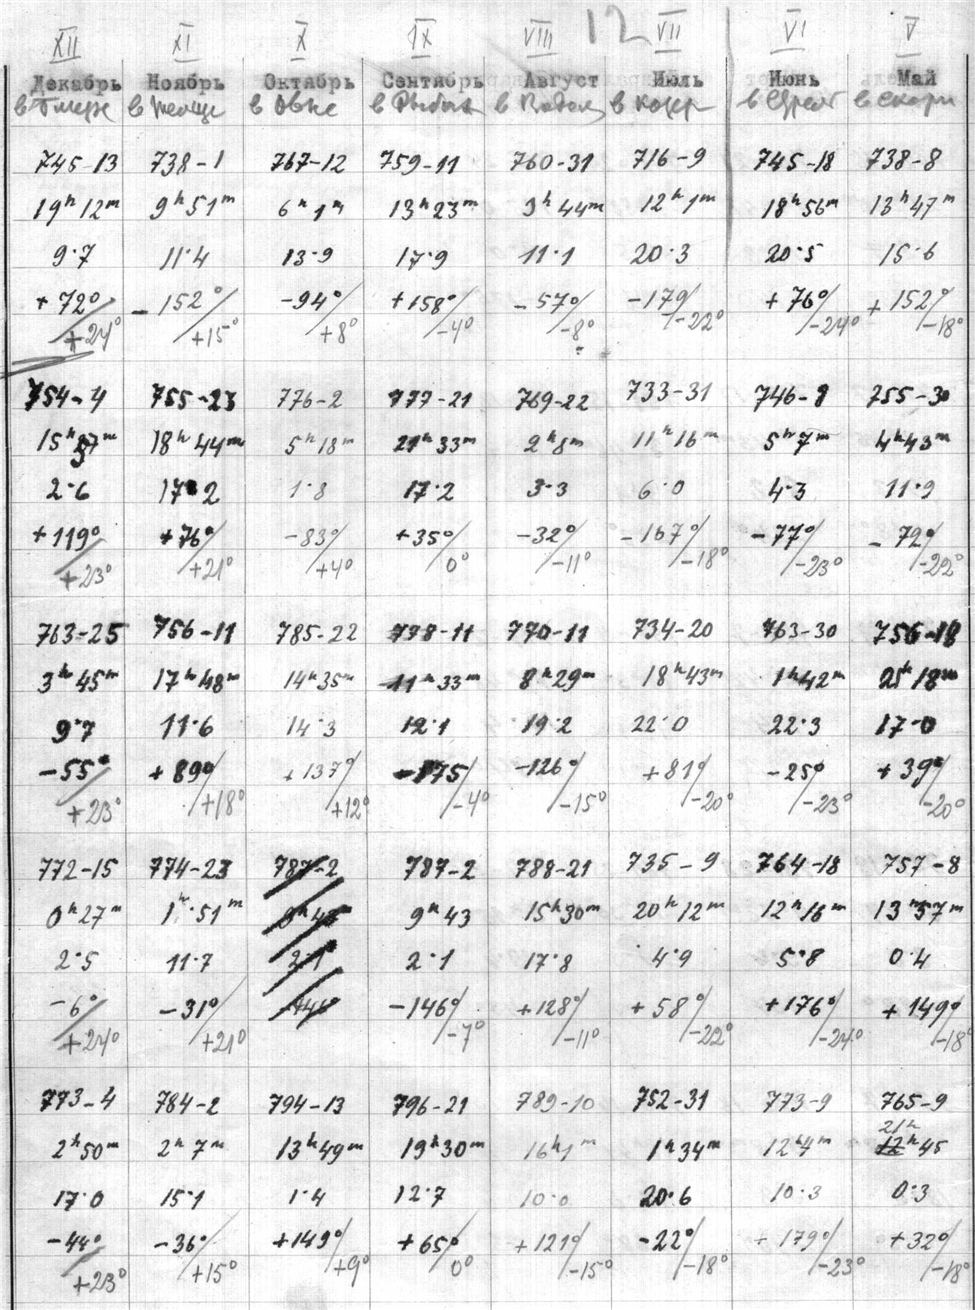 XII XI X IX VIII 12 VII VI V
Декабрь Ноябрь Октябрь Сентябрь Август Июль Июнь Май
в в в Овне в Рыбах в в в в
745-13 738-1 767-12 759-11 760-31 716-9 745-18 738-8
19h 12m 9h 51m 6h 1m 13h 23m 3h 44m 12h 1m 18h 56m 13h 47m
9.7 11.4 13.9 17.9 11.1 20.3 20.5 15.6
+72°/ -152°/ -94°/ +158°/ -57°/ -179/ +76°/ +152°/
+24° +15° +8° -4° -8° -22° -24° -18°
754-4 755-23 776-2 777-21 769-22 733-31 746-8 755-30
15h 37m 18h 44m 5h 18m 21h 33m 2h 8m 11h 16m 5h 7m 4h 43m
2.6 17.2 1.8 17.2 3.3 6.0 4.3 11.9
+119°/ +76°/ -83°/ +35°/ -32°/ -167°/ -77°/ -72°/
+23° +21° +4° 0° -11° -18° -23° -22°
763-25 756-11 785-22 778-11 770-11 734-20 763-30 756-18
3h 45m 17h 48m 14h 35m 11h 33m 8h 29m 18h 43m 1h 42m 18m
9.7 11.6 14.3 12.1 19.2 22.0 22.3 17.0
-55°/ +89°/ +137°/ -175/ -126°/ +81°/ -25°/ +39°/
+23° +18° +12° -4° -15° -20° -23° -20°
772-15 774-23 787-2 787-2 788-21 735-9 764-18 757-8
0h 27m 1h 51m 9h 43 9h 43 15h 30m 20h 12m 12h 16m 13h 37m
2.5 11.7 2.1 2.1 17.8 4.9 5.8 0.4
-6°/ -31°/ -146°/ +128°/ +58°/ +176°/ +149°/
+24° +21° -7° -11° -22° -24° -18°
773-4 784-2 794-13 796-21 789-10 752-31 773-9 765-9
21h
2h 50m 2h 7m 13h 49m 19h 30m 16h 1m 1h 34m 12h 4m 12h 45
17.0 15.1 1.4 12.7 10.0 20.6 10.3 0.3
-44°/ -36°/ +149°/ +65°/ +121°/ -22°/ +179°/ +32°/
+23° +15° +9° 0° -15° -18° -23° -18°